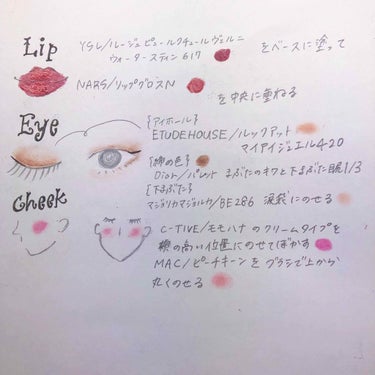 Lip
YSL/ルージュピュールクチュールヴェルニ
ウォーターステイン 617
をベースに塗って
NARS/リップグロスN
を中央に重ねる
Eye
{アイホール}
ETUDEHOUSE/ルックアット
マイアイジュエル420
の色}
Dior/パレット まぶたのキワと下まぶた眼1/3
{下まぶた}
マジョリカマジョルカ/BE286 涙袋にのせる
Cheek
C-TIVE/モモハナ のクリームタイプを
頬の高い位置にのせてぼかす
MAC/ピーチキーンをブラシで上から
丸くのせる